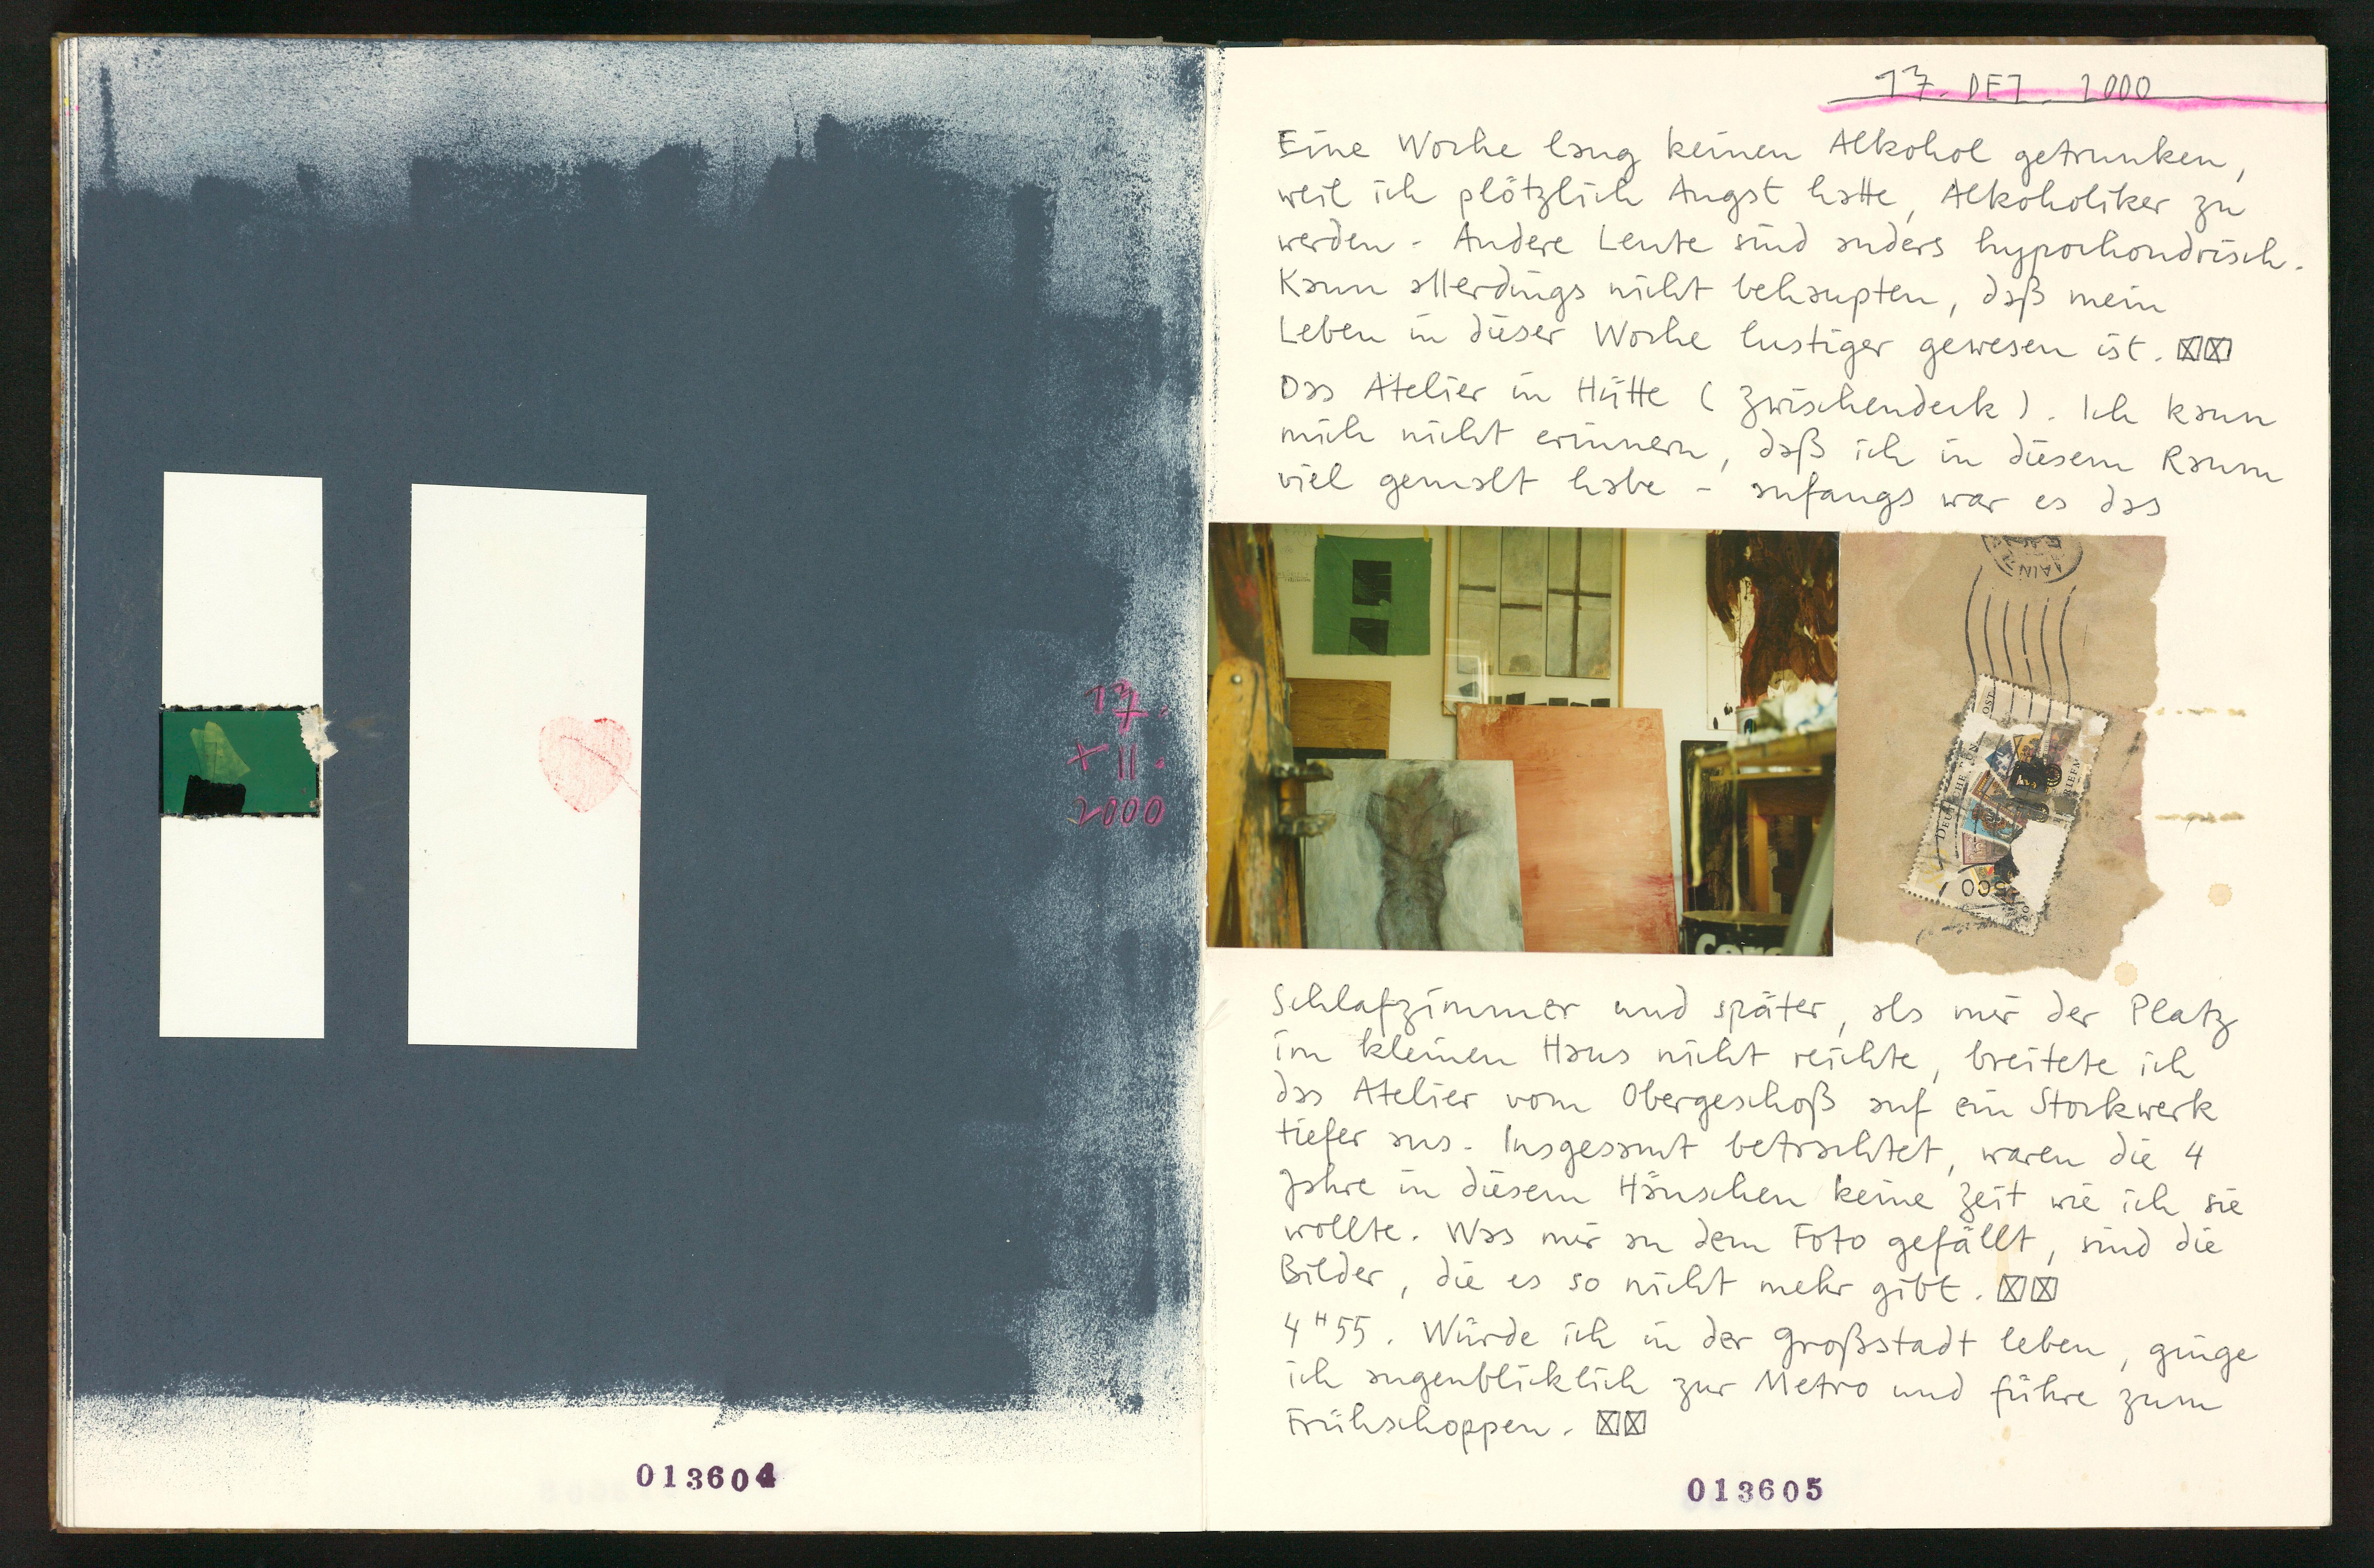 17.
XII.
2000
013604
17. DEZ. 2000
Eine Woche lang keinen Alkohol getrunken,
weil ich plötzlich Angst hatte, Alkoholiker zu
werden - Andere Leute sind anders hypochondrisch.
Kann allerdings nicht behaupten, daß mein
Leben in dieser Woche lustiger gewesen ist. ☒☒
Das Atelier in Hütte (Zwischendeck). Ich kann
mich nicht erinnern, daß ich in diesem Raum
viel gemalt habe - anfangs war es das
Schlafzimmer und später, als mir der Platz
im kleinen Haus nicht reichte, breitete ich
das Atelier vom Obergeschoß auf ein Stockwerk
tiefer aus. Insgesamt betrachtet, waren die 4
Jahre in diesem Häuschen keine Zeit wie ich sie
wollte. Was mir an dem Foto gefällt, sind die
Bilder, die es so nicht mehr gibt. ☒☒
4 H 55. Würde ich in der Großstadt leben, ginge
ich augenblicklich zur Metro und führe zum
Frühschoppen. ☒☒
013605